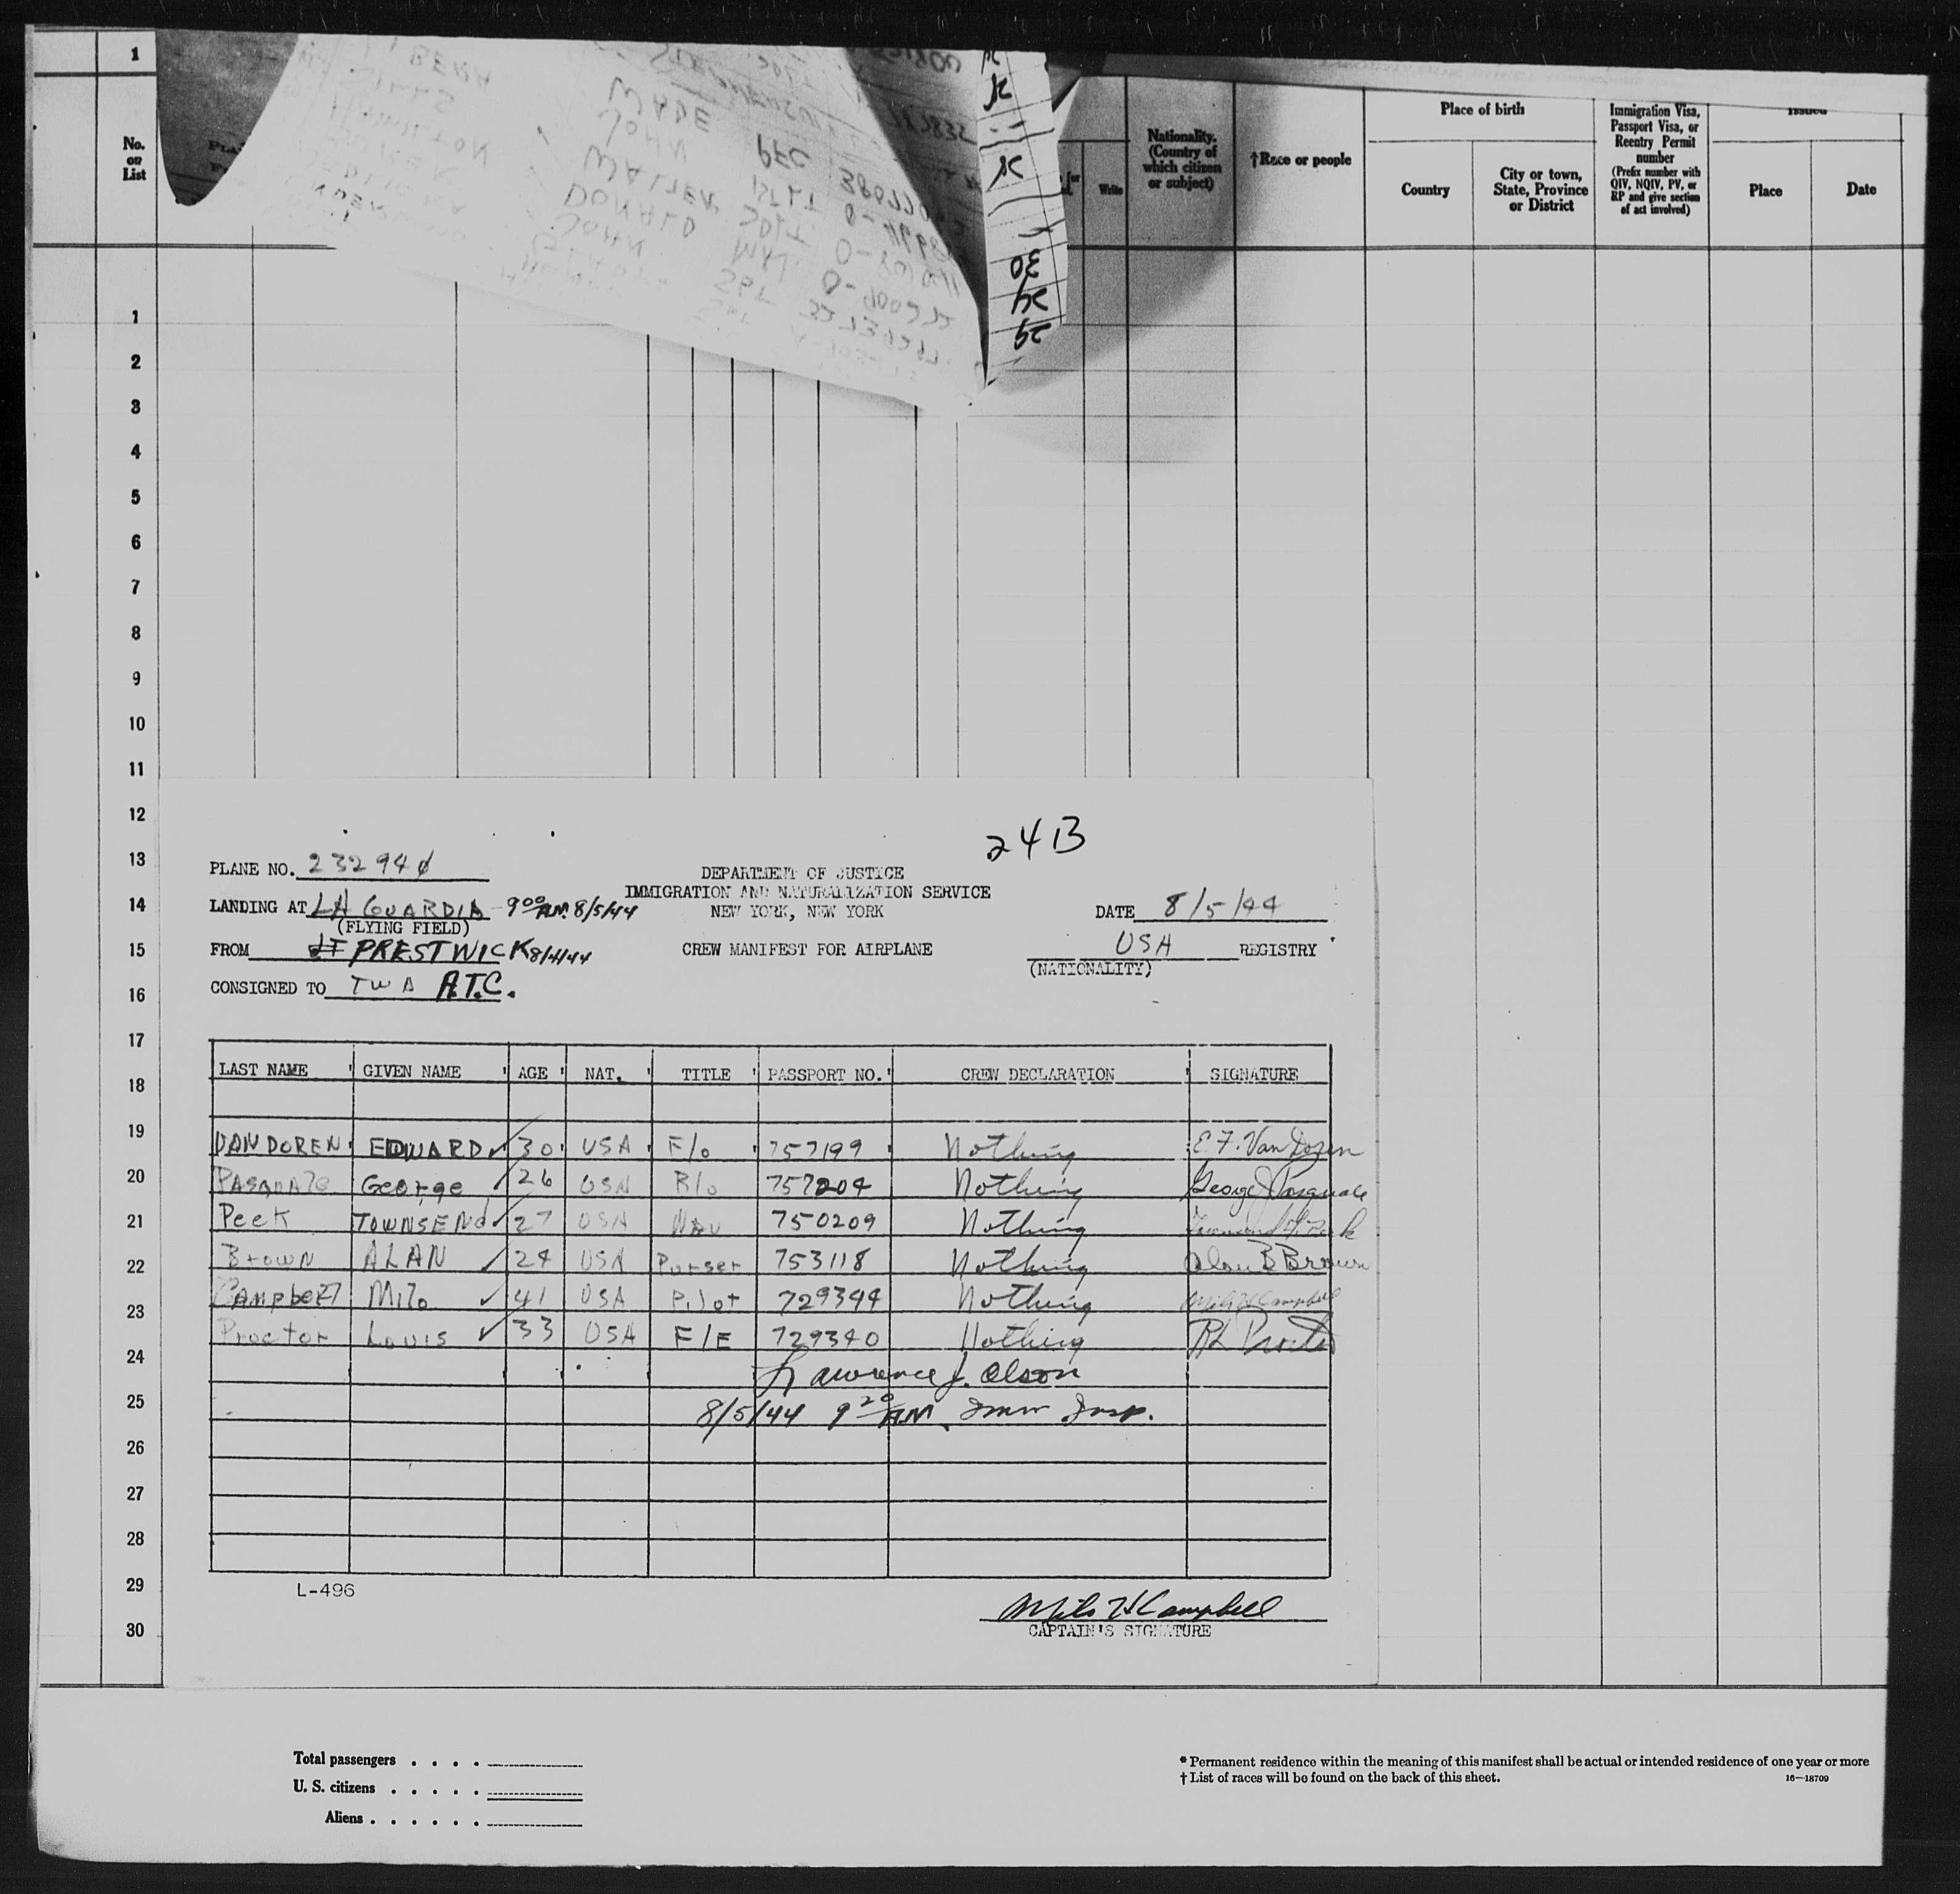 1
No. on List
Nationality. (Country of which citizen or subject)
†Race or people
Place of birth
Country
City or town, State, Province or District
Immigration Visa, Passport Visa, or Reentry Permit number (Prefix number with QIV, NQIV, PV, or RP and give section of act involved)
Issued
Place
Date
Write
BERN
WADE
JOHN
PFC
WALTER
1st LT
DONALD
JOHN
30
24
29
1
2
3
4
5
6
7
8
9
10
11
12
13
14
15
16
17
18
19
20
21
22
23
24
25
26
27
28
29
30
24B
PLANE NO. 2329440
DEPARTMENT OF JUSTICE
IMMIGRATION AND NATURALIZATION SERVICE
NEW YORK, NEW YORK
LANDING AT LA GUARDIA - 9 00 A.M. 8/5/44
(FLYING FIELD)
DATE 8/5/44
FROM PRESTWICK 8/4/44
CREW MANIFEST FOR AIRPLANE
USA REGISTRY
(NATIONALITY)
CONSIGNED TO TWA A.T.C.
LAST NAME GIVEN NAME AGE NAT. TITLE PASSPORT NO. CREW DECLARATION SIGNATURE
VAN DOREN EDWARD ✓ 30 USA F/o 757199 Nothing E. F. Van Doren
Pasquale George ✓ 26 USA R/o 757204 Nothing George J Pasquale
Peek TOWNSEND ✓ 27 USA Nav 750209 Nothing Peek
Brown ALAN ✓ 24 USA Purser 753118 Nothing Alan B Brown
Campbell Milo ✓ 41 USA Pilot 729344 Nothing Milo H Campbell
Proctor Louis ✓ 33 USA F/E 729340 Nothing RL Proctor
Lawrence J. Olson
8/5/44 9 20 AM. Imm Insp.
L-496
Milo H Campbell
CAPTAIN'S SIGNATURE
Total passengers . . . .
U. S. citizens . . . . .
Aliens . . . . . .
* Permanent residence within the meaning of this manifest shall be actual or intended residence of one year or more
† List of races will be found on the back of this sheet.
16—18709